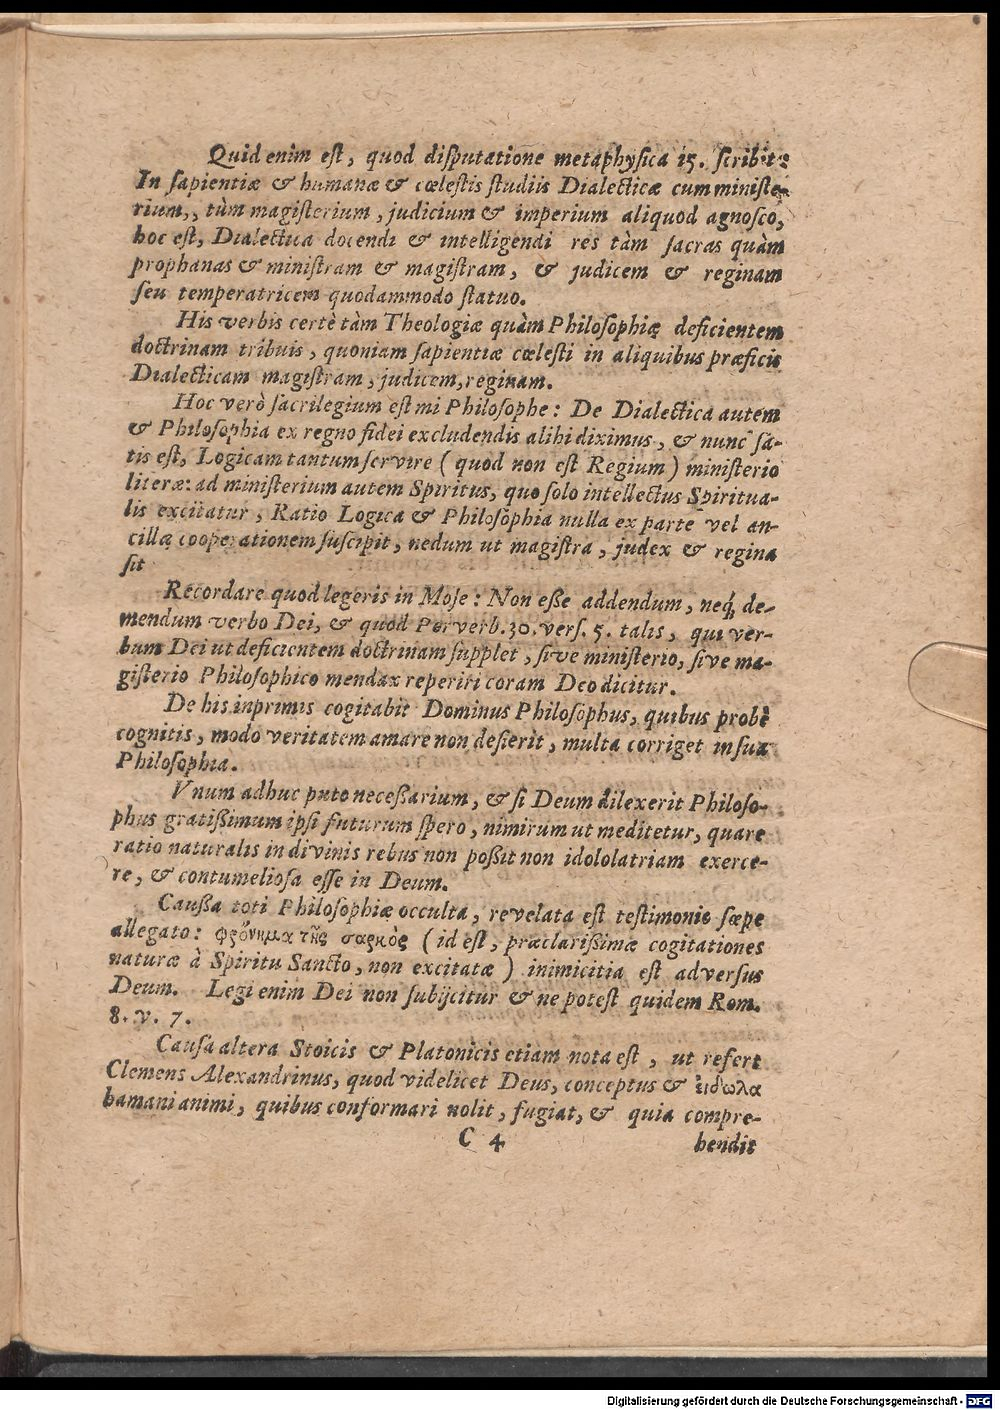 Quid enim eſt, quod diſputatione metaphyſica 15. ſcribit:
In ſapientiæ & humanæ & cœleſtis ſtudiis Dialecticæ cum miniſte-
rium,, tùm magiſterium, judicium & imperium aliquod agnoſco,
hoc eſt, Dialectica docendi & intelligendi res tàm ſacras quàm
prophanas & miniſtram & magiſtram, & judicem & reginam
ſeu temperatricem quodammodo ſtatuo.
His verbis certè tàm Theologiæ quàm Philoſophię deficientem
doctrinam tribuis, quoniam ſapientiæ cœleſti in aliquibus præficis
Dialecticam magiſtram, judicem, reginam.
Hoc verò ſacrilegium eſt mi Philoſophe: De Dialectica autem
& Philoſophia ex regno fidei excludendis alibi diximus, & nunc ſa-
tis eſt, Logicam tantum ſervire (quod non eſt Regium) miniſterio
literæ: ad miniſterium autem Spiritus, quo ſolo intellectus Spiritua-
lis excitatur, Ratio Logica & Philoſophia nulla ex parte vel an-
cillæ cooperationem ſuſcipit, nedum ut magiſtra, judex & regina
ſit
Recordare quod legeris in Moſe: Non eſſe addendum, neq́; de-
mendum verbo Dei, & quod Perverb. 30. verſ. 5. talis, qui ver-
bum Dei ut deficientem doctrinam ſupplet, ſive miniſterio, ſive ma-
giſterio Philoſophico mendax reperiri coram Deo dicitur.
De his inprimis cogitabit Dominus Philoſophus, quibus probè
cognitis, modo veritatem amare non deſierit, multa corriget in ſua
Philoſophia.
Vnum adhuc puto neceſſarium, & ſi Deum dilexerit Philoſo-
phus gratiſſimum ipſi futurum ſpero, nimirum ut meditetur, quare
ratio naturalis in divinis rebus non poſſit non idololatriam exerce-
re, & contumelioſa eſſe in Deum.
Cauſſa toti Philoſophiæ occulta, revelata eſt teſtimonio ſæpe
allegato: φρόνημα τῆς σαρκὸς (id eſt, præclariſſimæ cogitationes
naturæ à Spiritu Sancto, non excitatæ) inimicitia eſt adverſus
Deum. Legi enim Dei non ſubijcitur & ne poteſt quidem Rom.
8. v. 7.
Cauſa altera Stoicis & Platonicis etiam nota eſt, ut refert
Clemens Alexandrinus, quod videlicet Deus, conceptus & ἐιδωλα
hamani animi, quibus conformari nolit, fugiat, & quia compre-
C 4 hendit
Digitalisierung gefördert durch die Deutsche Forschungsgemeinschaft - DFG